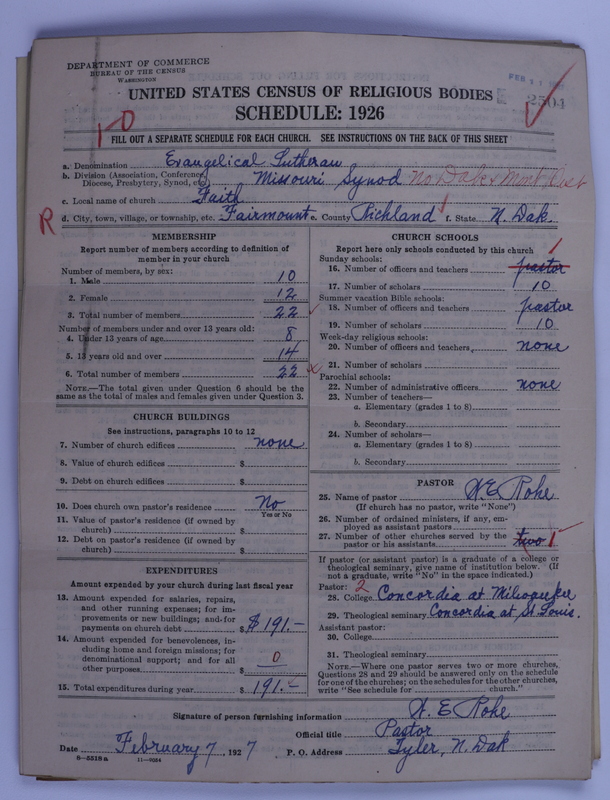 DEPARTMENT OF COMMERCE
BUREAU OF THE CENSUS
WASHINGTON
FEB 11
2504
UNITED STATES CENSUS OF RELIGIOUS BODIES
SCHEDULE: 1926
1-0
FILL OUT A SEPARATE SCHEDULE FOR EACH CHURCH. SEE INSTRUCTIONS ON THE BACK OF THIS SHEET
a. Denomination Evangelical Lutheran
b. Division (Association, Conference, Diocese, Presbytery, Synod, etc.) Missouri Synod No Dak & Mont Dist
c. Local name of church Faith
R d. City, town, village, or township, etc. Fairmount e. County Richland f. State N. Dak.
MEMBERSHIP
Report number of members according to definition of
member in your church
Number of members, by sex:
1. Male 10
2. Female 12
3. Total number of members 22
Number of members under and over 13 years old:
4. Under 13 years of age 8
5. 13 years old and over 14
6. Total number of members 22
NOTE.—The total given under Question 6 should be the
same as the total of males and females given under Question 3.
CHURCH BUILDINGS
See instructions, paragraphs 10 to 12
7. Number of church edifices none
8. Value of church edifices $
9. Debt on church edifices $
10. Does church own pastor's residence No
Yes or No
11. Value of pastor's residence (if owned by
church) $
12. Debt on pastor's residence (if owned by
church) $
EXPENDITURES
Amount expended by your church during last fiscal year
13. Amount expended for salaries, repairs,
and other running expenses; for im-
provements or new buildings; and for
payments on church debt $191.-
14. Amount expended for benevolences, in-
cluding home and foreign missions; for
denominational support; and for all
other purposes 0
15. Total expenditures during year $191.-
CHURCH SCHOOLS
Report here only schools conducted by this church
Sunday schools:
16. Number of officers and teachers pastor 1
17. Number of scholars 10
Summer vacation Bible schools:
18. Number of officers and teachers pastor
19. Number of scholars 10
Week-day religious schools:
20. Number of officers and teachers none
21. Number of scholars
Parochial schools:
22. Number of administrative officers none
23. Number of teachers—
a. Elementary (grades 1 to 8)
b. Secondary
24. Number of scholars—
a. Elementary (grades 1 to 8)
b. Secondary
PASTOR
25. Name of pastor W. E. Rohe
(If church has no pastor, write "None")
26. Number of ordained ministers, if any, em-
ployed as assistant pastors
27. Number of other churches served by the
pastor or his assistants two 1
If pastor (or assistant pastor) is a graduate of a college or
theological seminary, give name of institution below. (If
not a graduate, write "No" in the space indicated.)
Pastor: 2
28. College Concordia at Milwaukee
29. Theological seminary Concordia at St. Louis.
Assistant pastor:
30. College
31. Theological seminary
NOTE.—Where one pastor serves two or more churches,
Questions 28 and 29 should be answered only on the schedule
for one of the churches; on the schedules for the other churches,
write "See schedule for church."
Signature of person furnishing information W. E. Rohe
Official title Pastor
Date February 7, 1927 P. O. Address Tyler, N. Dak
8—5518a 11—9034